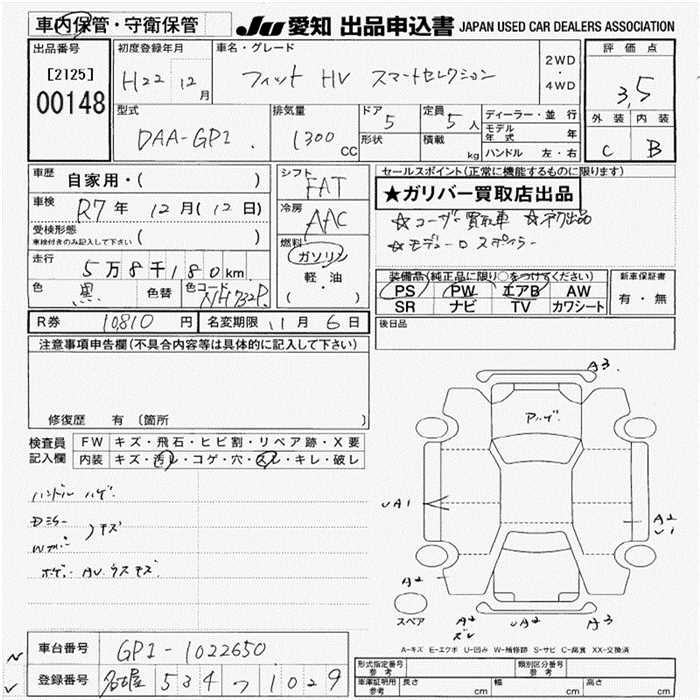 車内保管・守衛保管
JU 愛知 出品申込書 JAPAN USED CAR DEALERS ASSOCIATION
出品番号
[2125]
00148
初度登録年月
H22 12月
車名・グレード
フィット HV スマートセレクション
2WD
・
4WD
評価点
3.5
外装 内装
C B
型式
DAA-GP1
排気量
1300 CC
ドア
5
形状
定員
5人
積載
kg
ディーラー・並行
モデル年式 年
ハンドル 左・右
車歴 自家用・( )
車検 R7年 12月(12日)
受検形態
車検付きのみ記入して下さい ( )
走行 5万8千180km
色 黒 色替 色コード NH732P
シフト
FAT
冷房
AAC
燃料
ガソリン
軽・油
( )
セールスポイント(正常に機能するものに限ります)
★ガリバー買取店出品
☆ユーザー買取車 ☆初出品
☆モデューロ スポイラー
装備品(純正品に限り○をつけてください)
PS PW エアB AW
SR ナビ TV カワシート
新車保証書
有・無
R券 10810円 名変期限 11月6日
後日品
注意事項申告欄(不具合内容等は具体的に記入して下さい)
修復歴 有 〔箇所 〕
検査員記入欄
FW キズ・飛石・ヒビ割・リペア跡・X要
内装 キズ・汚レ・コゲ・穴・スレ・キレ・破レ
ハンドル ハゲ
Dミラー
キズ
ボデー AU ウスキズ
A3
アハゲ
UA1
A2
U1
A2
スペア
A2
スレ
UA2
A3
A-キズ E-エクボ U-凹み W-補修跡 S-サビ C-腐食 XX-交換済
車台番号 GP1-1022650
登録番号 名古屋 534 つ 1029
形式指定番号
参考
類別区分番号
参考
車庫証明用
参考
長さ cm 幅 cm 高さ cm